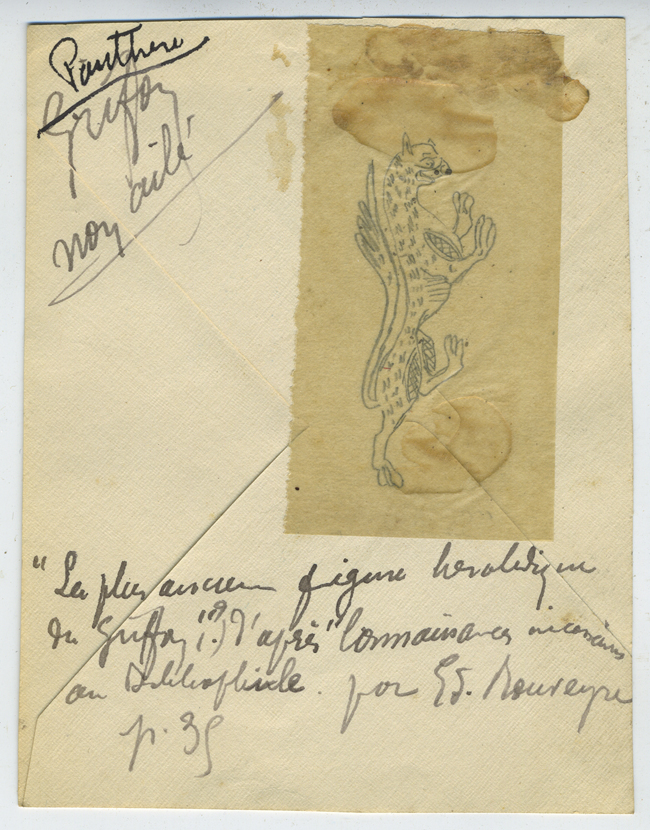 Panthere
Griffon
non ailé
"La plus ancienne figure heraldique
du Griffon" (?) d'après "Connaissances nécessaires
au Bibliophile. par Ed. Rouveyre
p. 35